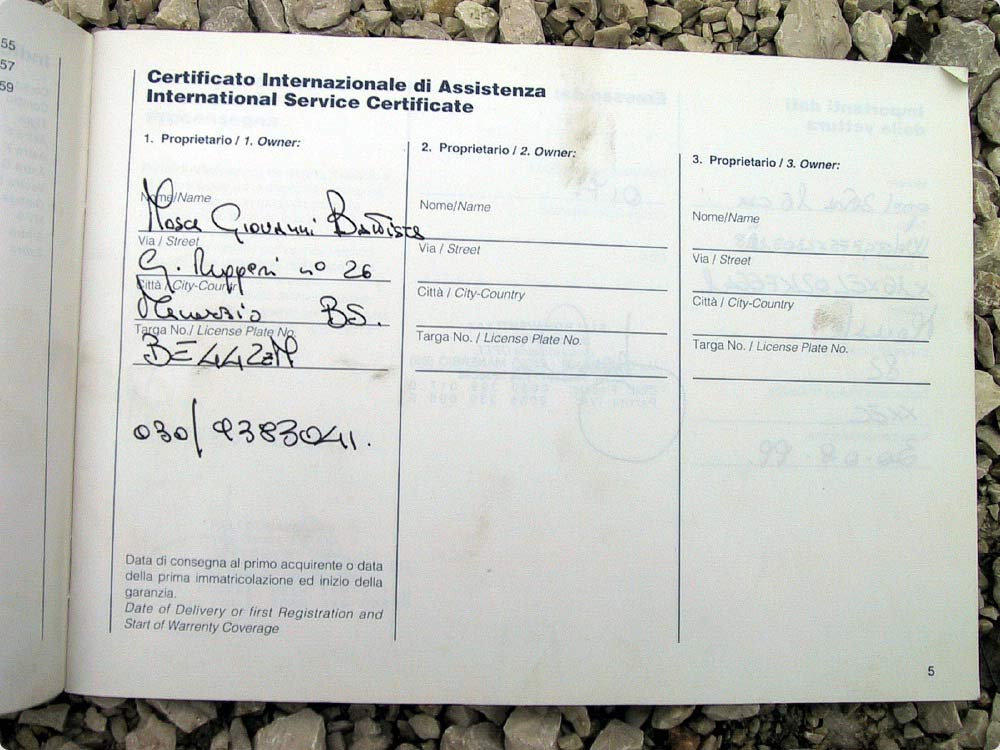 55
57
59
Certificato Internazionale di Assistenza
International Service Certificate
1. Proprietario / 1. Owner:
Nome/Name
Mosca Giovanni Battista
Via / Street
G. n° 26
Città / City-Country
BS.
Targa No./ License Plate No.
BE442ZM
030/9383041.
Data di consegna al primo acquirente o data
della prima immatricolazione ed inizio della
garanzia.
Date of Delivery or first Registration and
Start of Warrenty Coverage
2. Proprietario / 2. Owner:
Nome/Name
Via / Street
Città / City-Country
Targa No. / License Plate No.
3. Proprietario / 3. Owner:
Nome/Name
Via / Street
Città / City-Country
Targa No. / License Plate No.
5